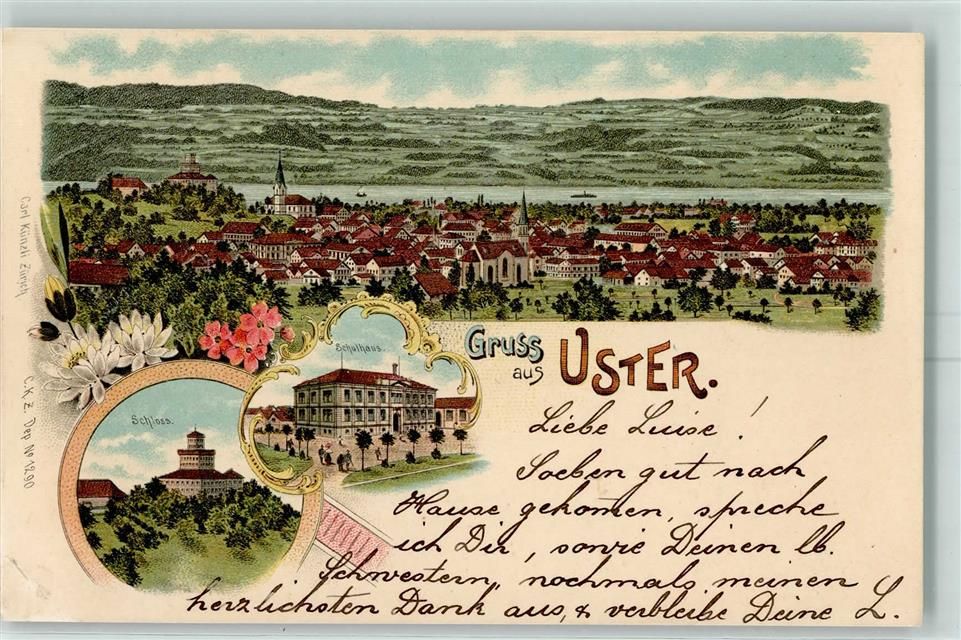 Gruss
aus USTER.
Schulhaus.
Schloss.
Carl Künzli Zürich
C.K.Z. Dep No 1290
Liebe Luise!
Soeben gut nach
Hause gekomen, spreche
ich Dir, sowie Deinen lb.
Schwestern, nochmals meinen
herzlichsten Dank aus, & verbleibe Deine L.